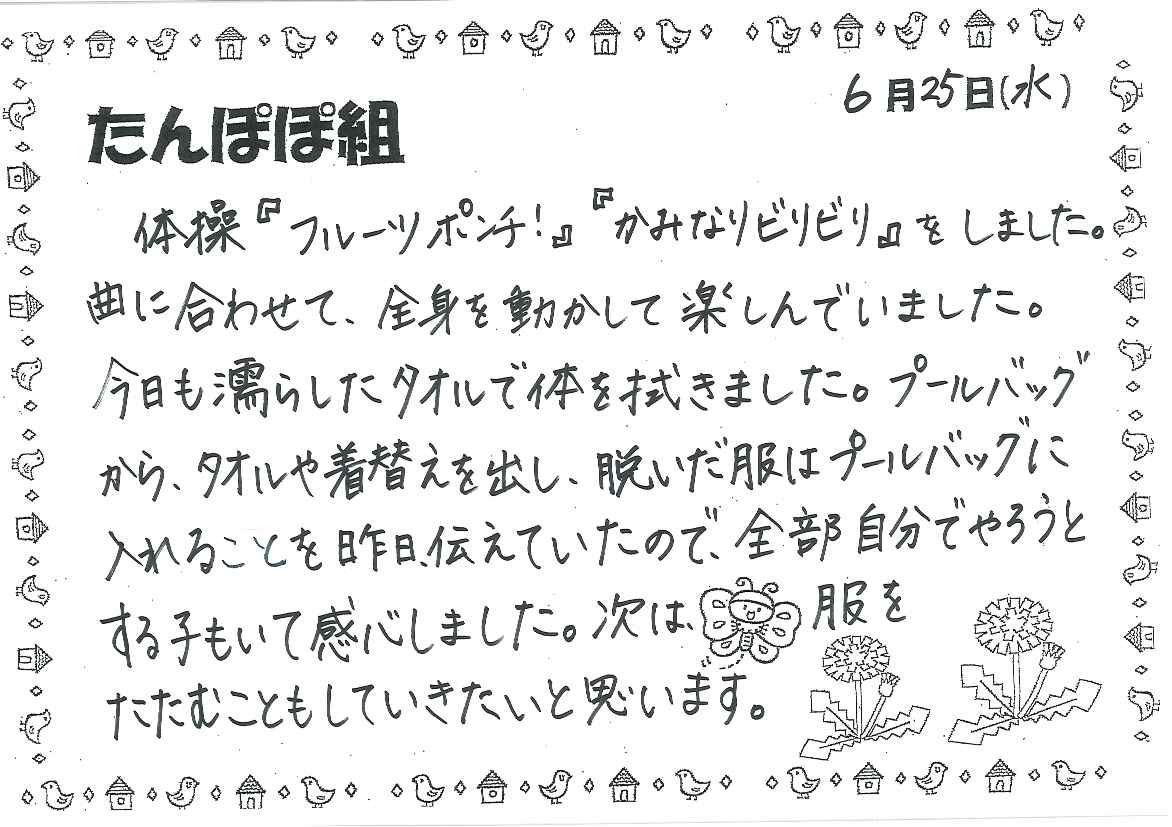 6月25日(水)
たんぽぽ組
体操『フルーツポンチ!』『かみなりビリビリ』をしました。
曲に合わせて、全身を動かして楽しんでいました。
今日も濡らしたタオルで体を拭きました。プールバッグ
から、タオルや着替えを出し、脱いだ服はプールバッグに
入れることを昨日、伝えていたので、全部自分でやろうと
する子もいて感心しました。次は、服を
たたむこともしていきたいと思います。